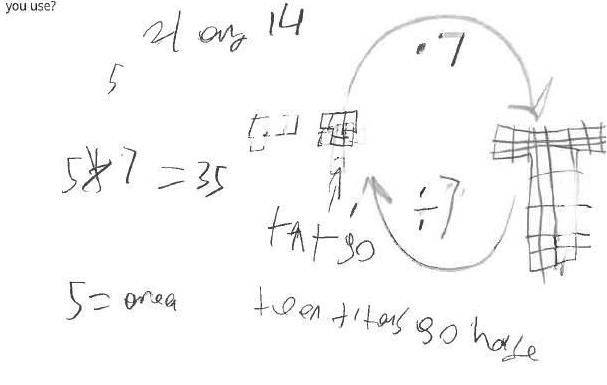 you use?
21 or 14
5
.7
5*7 = 35
÷7
5 = area
teen titans go house